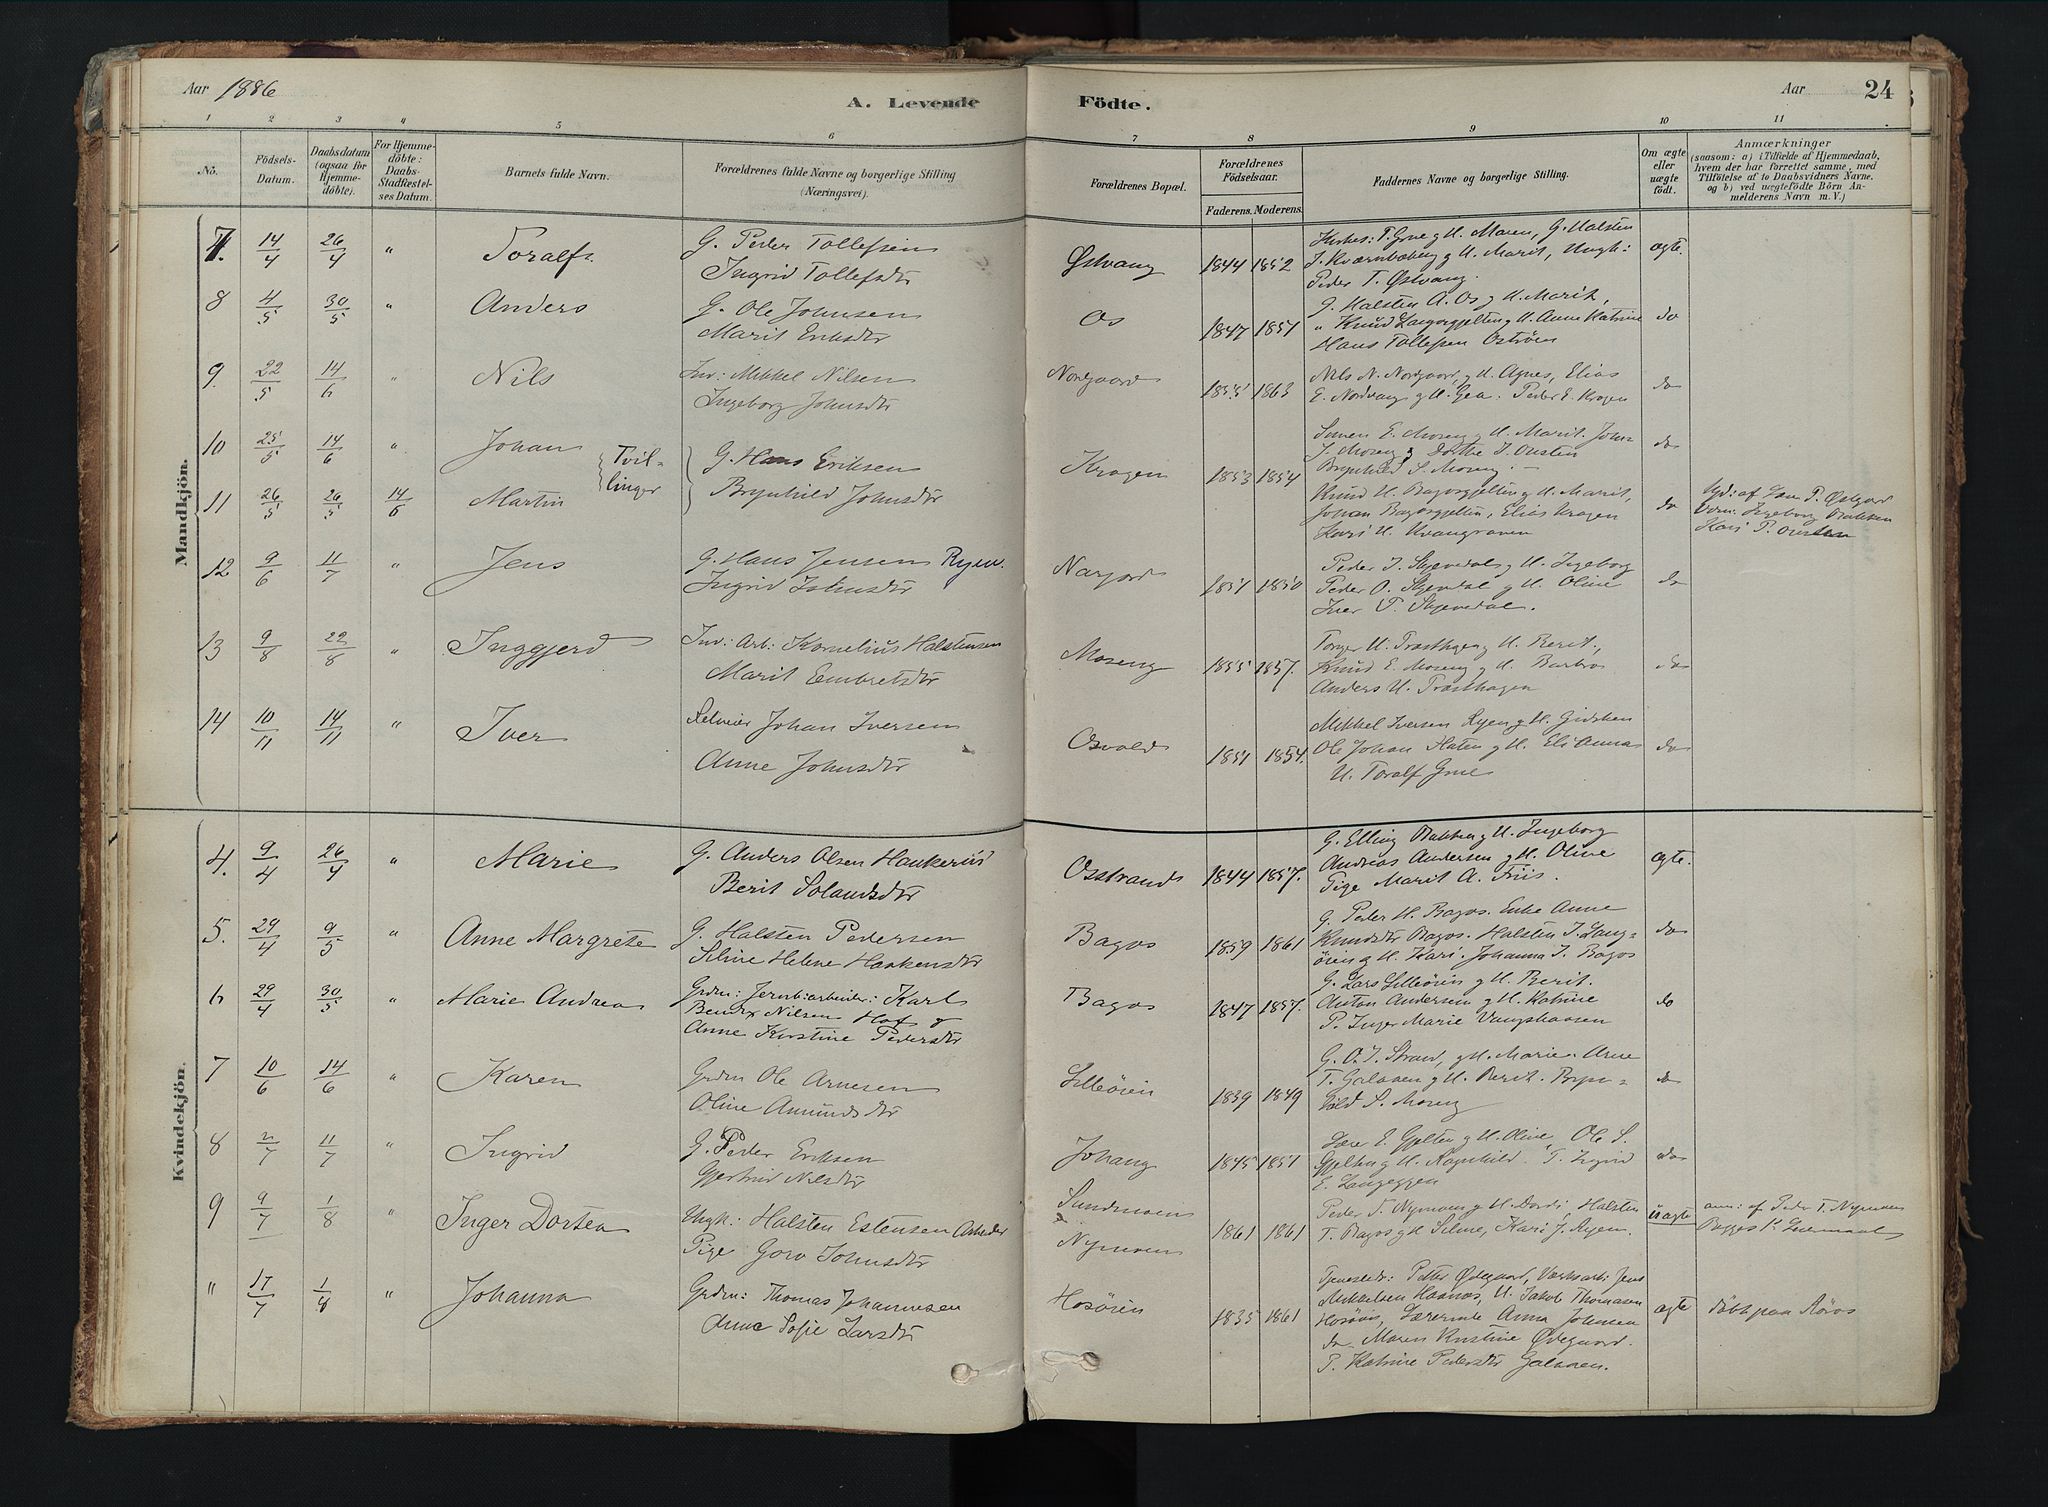 Aar 1886
A. Levende Födte.
Aar 24
1 2 3 4 5 6 7 8 9 10 11
No.
Födsels-Datum.
Daabsdatum (ogsaa for Hjemmedöbte).
For Hjemmedöbte: Daabs-Stadfæstelses Datum.
Barnets fulde Navn.
Forældrenes fulde Navne og borgerlige Stilling (Næringsvei).
Forældrenes Bopæl.
Forældrenes Födselsaar.
Faderens. Moderens.
Faddernes Navne og borgerlige Stilling.
Om ægte eller uægte födt.
Anmærkninger
(saasom: a) i Tilfælde af Hjemmedaab, hvem der har forrettet samme, med Tilföielse af to Daabsvidners Navne, og b) ved uægtefödte Börn Anmelderens Navn m. V.)
Mandkjön.
7. 14/4 26/4 " Toralf. G. Peder Tollefsen
Ingrid Tollefsdtr Østvang 1844 1852
G. Halsten
g H. Marit, Ungk:
Peder T. Østvang. ægte.
8 4/5 30/5 " Anders G. Ole Johnsen
Marit Eriksdtr Os 1847 1851
G. Halsten A. Os g H. Marit,
" Knud g H. Anne Katrine
Hans Tollefsen Oströen do
9. 22/5 14/6 " Nils Ind: Mikkel Nilsen
Ingeborg Johnsdtr Norgaard 1855 1863
Nils N. Norgaard, g H. Agnes, Elias
E. Nordvang g H. Gea. Peder E. Krogen do
10 25/5 14/6 " Johan Tvillinger G. Hans Eriksen
Brynhild Johnsdtr Krogen 1853 1854
Simen E. Moseng g H. Marit. John
J. Moseng, Dorthe J. Ousten
Brynhild S. Moseng. do
11 26/5 26/5 14/6 Martin
Knud H. g H. Marit,
Johan Elias Krogen
Kari H. Kvangraven do
P. Østgard
Ingeborg Bakken
Kari P.
12 9/6 11/7 " Jens G. Hans Jensen Ryen.
Ingrid Johnsdtr Narjord 1851 1850
Peder J. Skjevedal g H. Ingeborg
Peder O. Skjevdal g H. Oline
Iver P. Skjevedal. do
13 9/8 22/8 " Inggjerd Ind: Arb: Kornelius Halstensen
Marit Embretsdtr Moseng 1855 1857.
H. Trøsthagen g H. Berit,
Knud E. Moseng g H. Barbro
Anders H. Trøsthagen do
14 10/11 14/11 " Iver Selveier Johan Iversen
Anne Johnsdtr Osvold 1851 1854.
Mikkel Iversen Ryen g H.
Ole Johan g H. Eli Anna
U. Toralf do
Kvindekjön.
4. 9/4 26/4 " Marie G. Anders Olsen
Berit Osstrand 1844 1857.
G. Elling Bakken g H. Ingeborg
Andreas Andersen g H. Oline
Pige Marit A. Friis. ægte.
5. 29/4 9/5 " Anne Margrete G. Halsten Pedersen
Siline Helene Haakensdtr Bagos 1859 1861
G. Peder H. Bagos. Enke Anne
Knudsdtr Bagos. Halsten J. Langöien
g H. Kari. Johanna J. Bagos do
6 29/4 30/5 " Marie Andrea Grdm: Jernb:arbeider: Karl
Nilsen g
Anne Kirstine Pedersdtr Bagos 1847 1857.
G. Lars Lilleöien g H. Berit.
Anton Andersen g H. Katrine
P. Inger Marie do
7 10/6 14/6 " Karen Grdm Ole Arnesen
Oline Amundsdtr Lilleöien 1839 1849
G. O. J. Strand, g H. Marie. Arne
T. Galaaen g H. Berit. Brynhild
S. Moseng do
8 2/7 11/7 " Ingrid G. Peder Eriksen
Gjertrud Nilsdtr Johang 1845 1851
E. Gjelten g H. Oline, Ole S.
Gjelten g H. Ragnhild. P. Ingrid
E. Langeggen do
9 9/7 1/8 " Inger Dortea Ungk: Halsten Estensen
Pige Goro Johnsdtr Sundmoen
Nymoen 1861 1861
Peder T. Nymoen g H. Dordi, Halsten
T. Bagos g H. Siline, Kari J. Ryen. uægte
anm: af Peder T. Nymoen
" 17/7 1/8 " Johanna Grdm: Thomas Johannesen
Anne Sofie Larsdtr Hosöien 1835 1861
Tjenestedr: Petter Ødegaard, Værksarb: Jens
Mikkelsen U. Jakob Thomasen
Hosöien, Lærerinde Anna Johnsen
do Maren Kristine Ødegaard.
P. Katrine Pedersdtr Galaaen. ægte döbt paa Röros